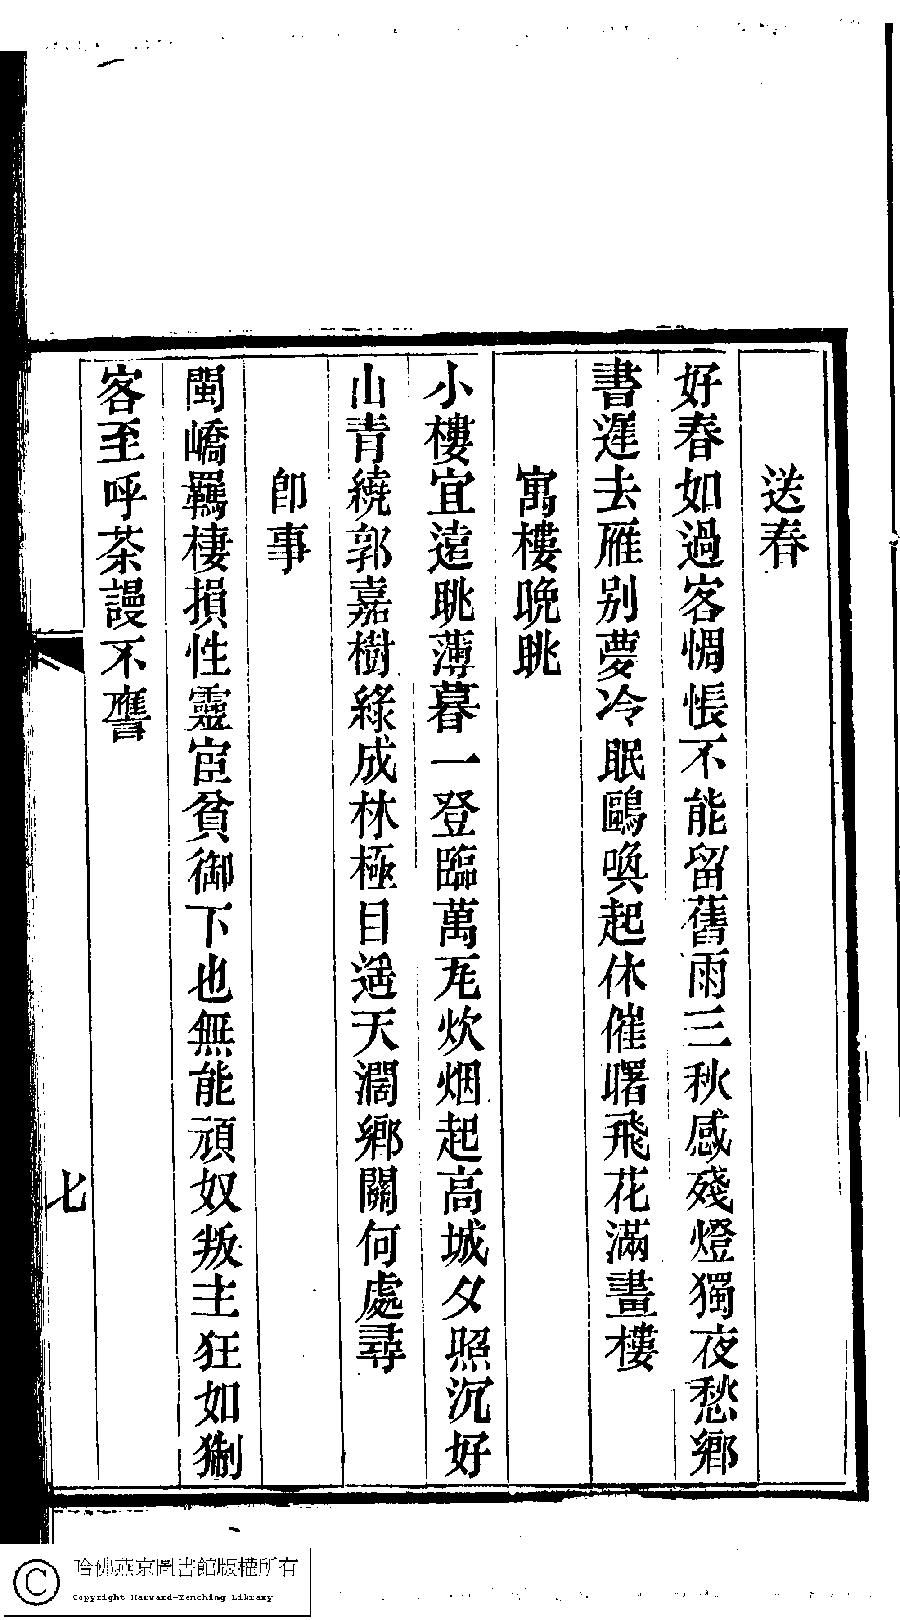 送春
好春如過客惆悵不能留舊雨三秋感殘燈獨夜愁鄉
書遲去雁别夢冷眠鷗喚起休催曙飛花滿畫樓
寓樓晚眺
小樓宜遠眺薄暮一登臨萬瓦炊烟起高城夕照沉好
山青繞郭嘉樹綠成林極目遥天濶鄉關何處尋
卽事
閩嶠羈棲損性靈宦貧御下也無能頑奴叛主狂如猘
客至呼茶謾不譍
七
哈佛燕京圖書館版權所有
Copyright Harvard-Yenching Library